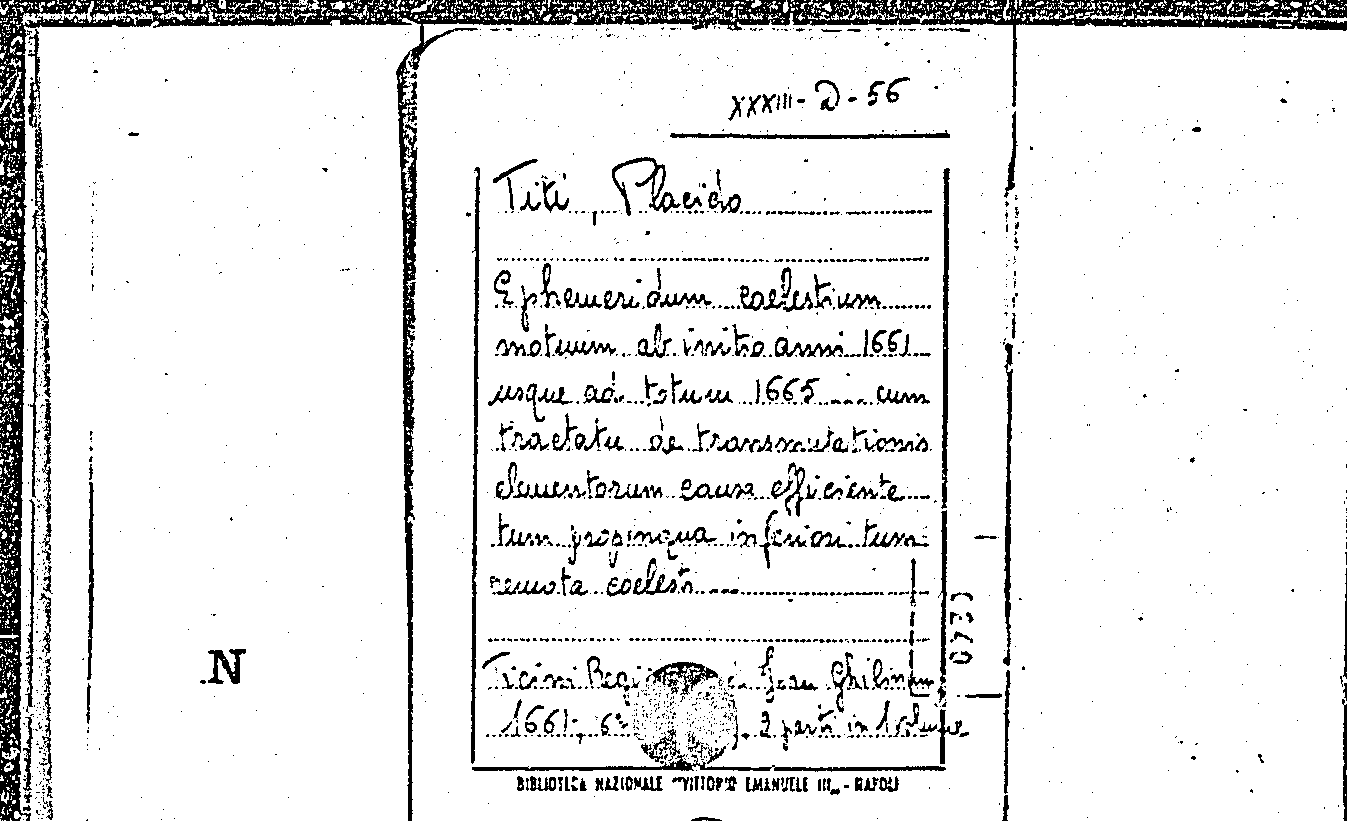 XXXIII-D-56
Titi, Placido
Ephemeridum coelestium
motuum ab initio anni 1661
usque ad totum 1665 ... cum
tractatu de transmutationis
elementorum causa efficiente
tum propinqua inferiori tum
remota coelesti ...
Ticini Regi Ghilinum
1661; 6° 2 parti in 1 volume
BIBLIOTECA NAZIONALE "VITTORIO EMANUELE III" - NAPOLI
N